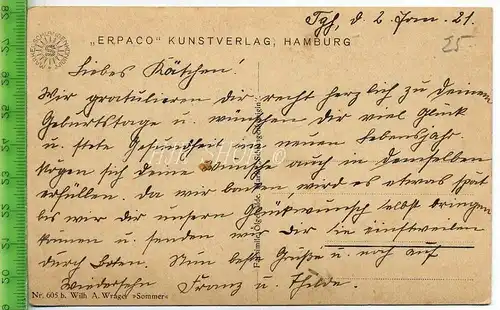 Tgh, d 2. Jan. 21.
„ERPACO" KUNSTVERLAG, HAMBURG
25
Liebes Kätchen!
Wir gratulieren dir recht herzlich zu Deinem
Geburtstage u. wünschen dir viel Glück
u. stete Gesundheit im neuen Lebensjahr.
Mögen sich deine Wünsche auch in demselben
erfüllen. Da wir bauen, wird es etwas spät
bis wir dir unsern Glückwunsch selbst bringen
können u. senden wir Dir sie einstweilen
durch Boten. Nun beste Grüße u. noch auf
Wiedersehn Franz u. Thilde.
Nr. 605 b. Wilh. A. Wrager »Sommer«